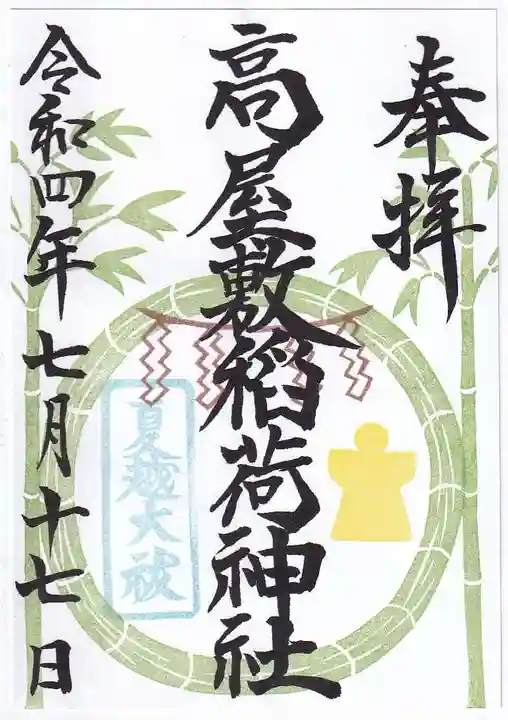 奉拝
高屋敷稻荷神社
夏越大祓
令和四年七月十七日